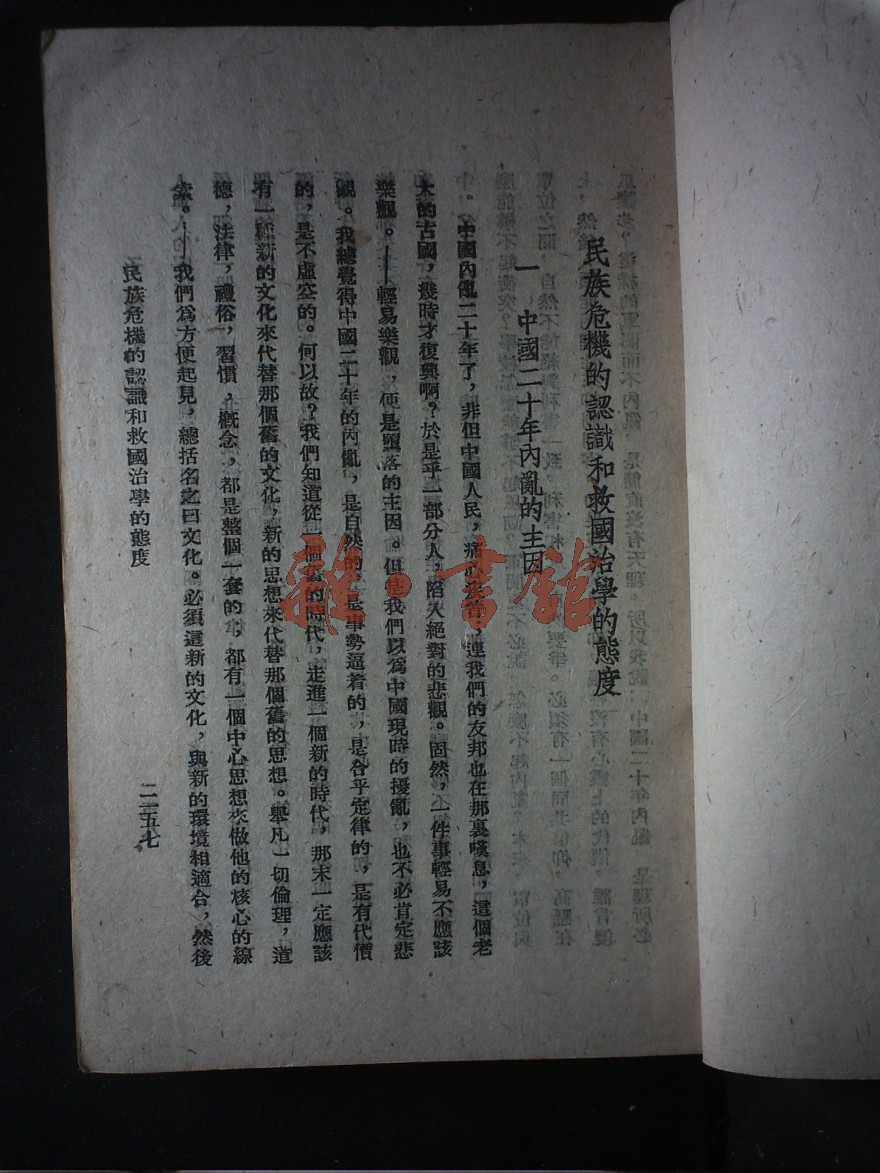 民族危機的認識和救國治學的態度
一 中國二十年內亂的主因
中國內亂二十年了，非但中國人民，痛心疾首，連我們的友邦也在那裏嘆息，這個老
大的古國，幾時才復興啊？於是乎一部分人，陷入絕對的悲觀。固然，一件事輕易不應該
樂觀。——輕易樂觀，便是墮落的主因。但是我們以爲中國現時的擾亂，也不必肯定悲
觀。我總覺得中國二十年的內亂，是自然的，是事勢逼着的，是合乎定律的，是有代價
的，是不虛空的。何以故？我們知道從一個舊的時代，走進一個新的時代，那末一定應該
有一種新的文化來代替那個舊的文化，新的思想來代替那個舊的思想。舉凡一切倫理，道
德，法律，禮俗，習慣，概念，都是整個一套的，都有一個中心思想來做他的核心的線
索。——我們爲方便起見，總括名之曰文化。必須這新的文化，與新的環境相適合，然後
民族危機的認識和救國治學的態度
二二五七
雜·書館